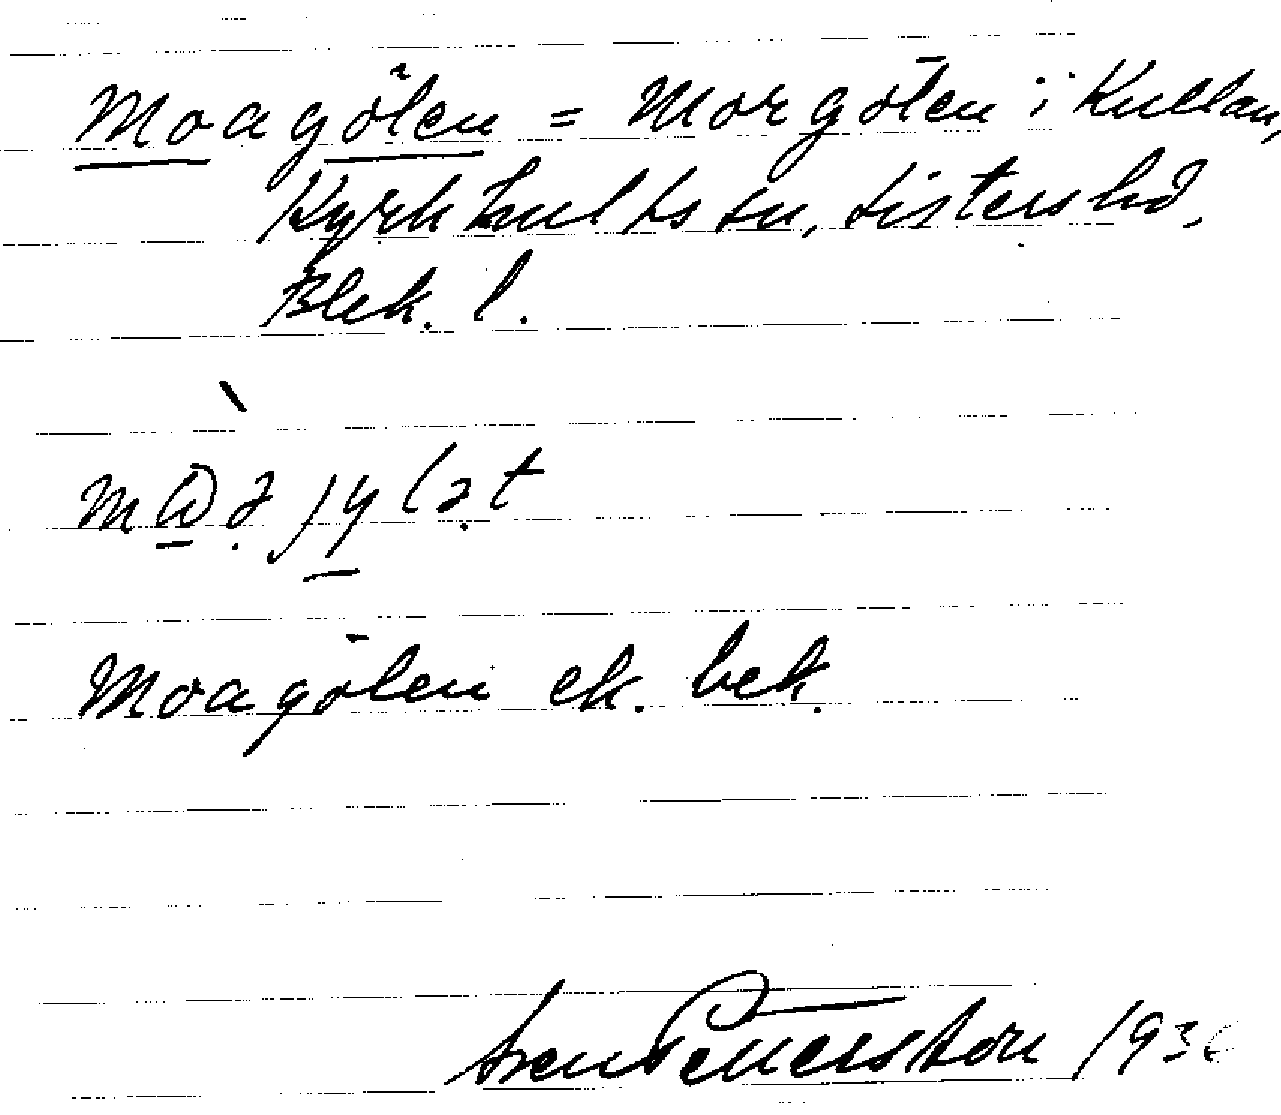 Moagölen = Morgölen i Kullan,
Kyrkhults sn, Listers hd,
Blek. l.
Moagölen ek. bek.
Sven Pettersson 193